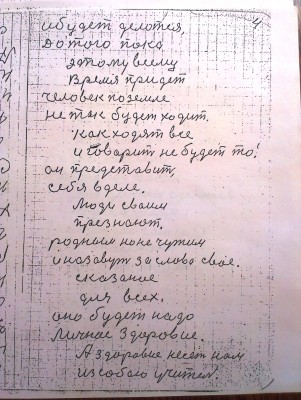 4
и будет делотся,
до того пока
этому всему
время придет
человек по земле
не так будет ходит.
как ходят все
и говорит не будет то!
он представит,
себя в деле.
Люди своим
презнают.
родным ноне чужим
и назовут за слово свое.
сказаное
для всех.
оно будет надо
Личное Здоровие.
А здоровие несет нам
из собою учител